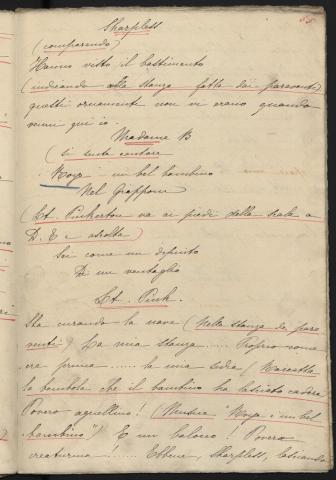 Sharpless
(comparendo)
Hanno visto il bastimento
(indicando alla stanza fatta dai paraventi)
questi ornamenti non vi erano quando
venni qui io.
Madame B
(si sente cantare
Roje un bel bambino
Nel Giappone
(Lt. Pinkerton va ai piedi della scala a
D. E e ascolta)
Sei come un dipinto
Di un ventaglio
Lt. Pink.
Sta curando la nave (Nella stanza dei para
venti) La mia stanza..... Proprio come
era prima ..... la mia sedia (Raccoglie
la bambola che il bambino ha lasciato cadere
Povero agnellino! (Musica "Roje è un bel
bambino") E un balocco! Povera
creaturina!..... Ebbene, Sharpless, lasciando